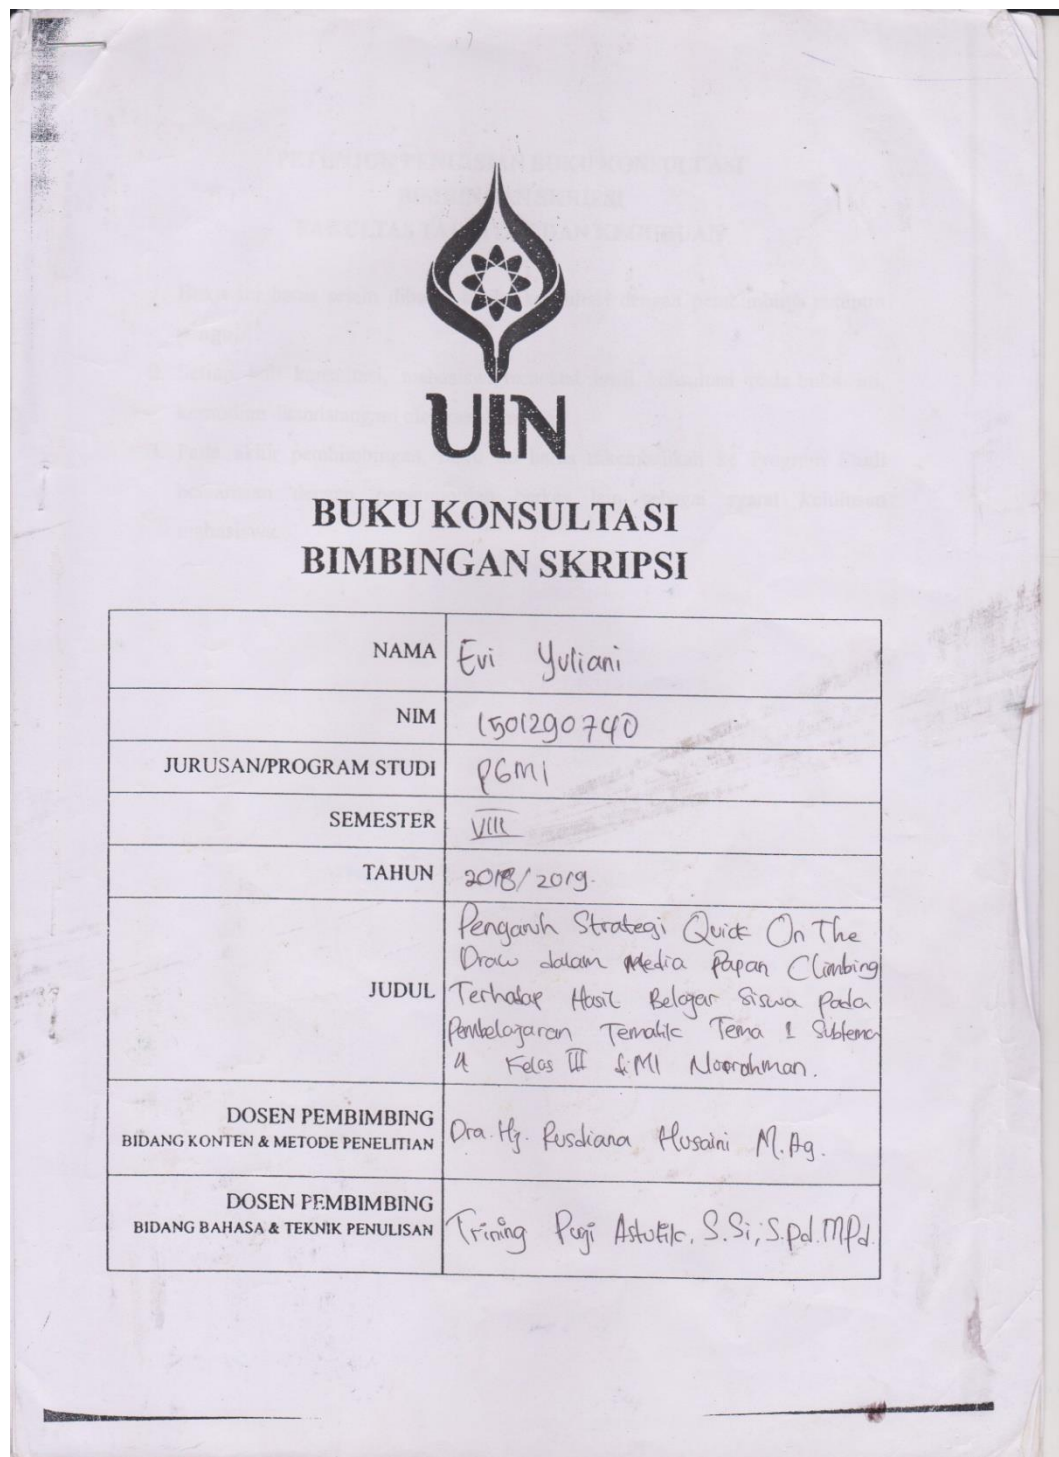 UIN
BUKU KONSULTASI
BIMBINGAN SKRIPSI
NAMA Evi Yuliani
NIM 1501290740
JURUSAN/PROGRAM STUDI PGMI
SEMESTER VIII
TAHUN 2018/2019.
JUDUL Pengaruh Strategi Quick On The
Draw dalam Media Papan Climbing
Terhadap Hasil Belajar Siswa pada
Pembelajaran Tematik Tema 1 Subtema
4 Kelas III di MI Noorrohman.
DOSEN PEMBIMBING
BIDANG KONTEN & METODE PENELITIAN Dra. Hj. Rusdiana Husaini M.Ag.
DOSEN PEMBIMBING
BIDANG BAHASA & TEKNIK PENULISAN Trining Puji Astutik, S.Si, S.Pd. M.Pd.